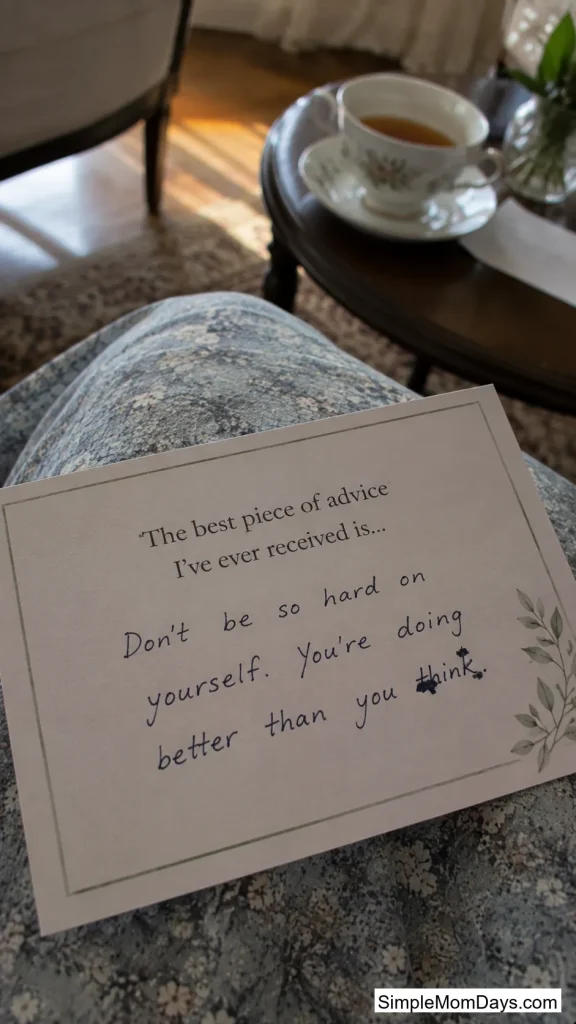 The best piece of advice
I've ever received is...
Don't be so hard on
yourself. You're doing
better than you think.
SimpleMomDays.com